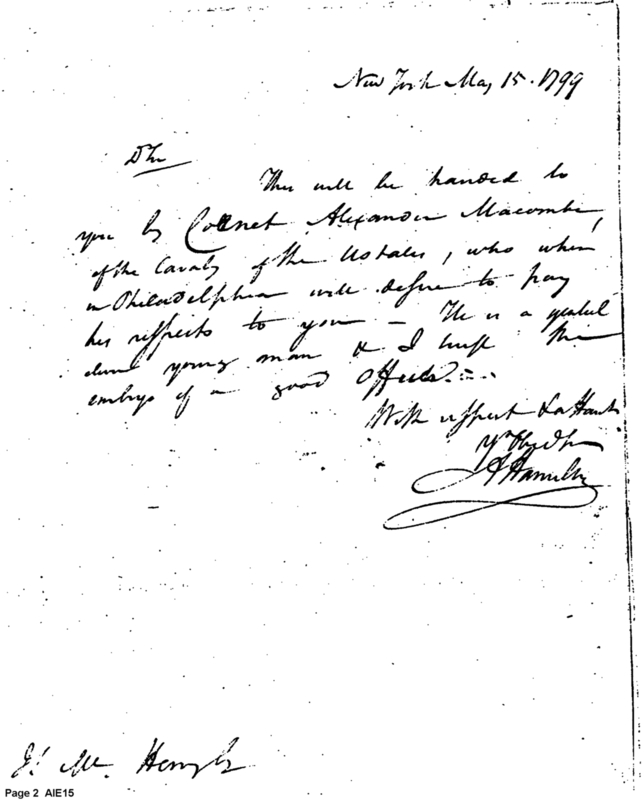 New York May 15. 1799
D Sir
This will be handed to
you by Cornet Alexander Macombe,
of the Cavalry of the UStates, who when
in Philadelphia will desire to pay
his respects to you – He is a genteel
clever young man & I trust the
embryo of a good Officer.
With respect &
Yr Obed Ser
A Hamilton
J. Mc. Henry
Page 2 AIE15